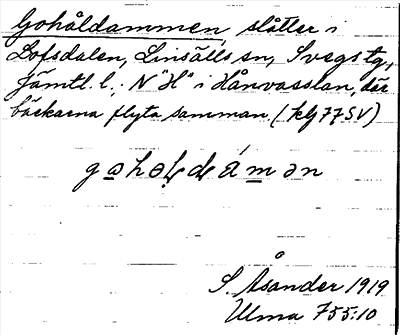 Gohåldammen, slåtter i
Lofsdalen, Linsälls sn, Svegs tg,
Jämtl. l., N "H" i Hånvasslan, där
bäckarna flyta samman. (klj 77 SV)
S. Åsander 1919
Ulma 755:10